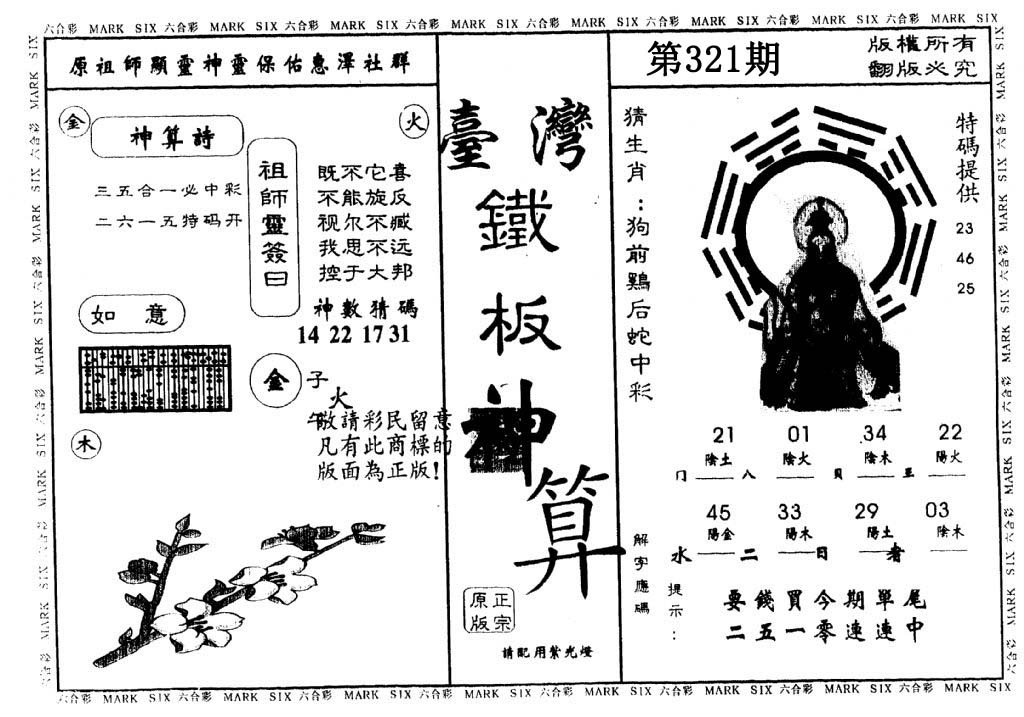 六合彩 MARK SIX 六合彩 MARK SIX 六合彩 MARK SIX 六合彩 MARK SIX 六合彩 MARK SIX 六合彩 MARK SIX 六合彩 MARK SIX 六合彩 MARK SIX
原祖師顯靈神靈保佑惠澤社群
金
火
神算詩
三五合一必中彩
二六一五特码开
祖師靈簽曰
既不它喜
不能旋反
视尔不臧
我思不远
控于大邦
神數猜碼
14 22 17 31
如意
金
子
火
午
木
敬請彩民留意
凡有此商標的
版面為正版!
臺灣
鐵板神算
正宗
原版
請配用紫光燈
第321期
版權所有
翻版必究
猜生肖:狗前鷄后蛇中彩
特碼提供
23
46
25
21 01 34 22
陰土 陰火 陰木 陽火
門 八 貝 至
45 33 29 03
陽金 陽木 陽土 陰木
水 二 日 者
解字應碼
提示:
要錢買今期單尾
二五一零連連中
六合彩 MARK SIX 六合彩 MARK SIX 六合彩 MARK SIX 六合彩 MARK SIX 六合彩 MARK SIX 六合彩 MARK SIX 六合彩 MARK SIX 六合彩 MARK SIX